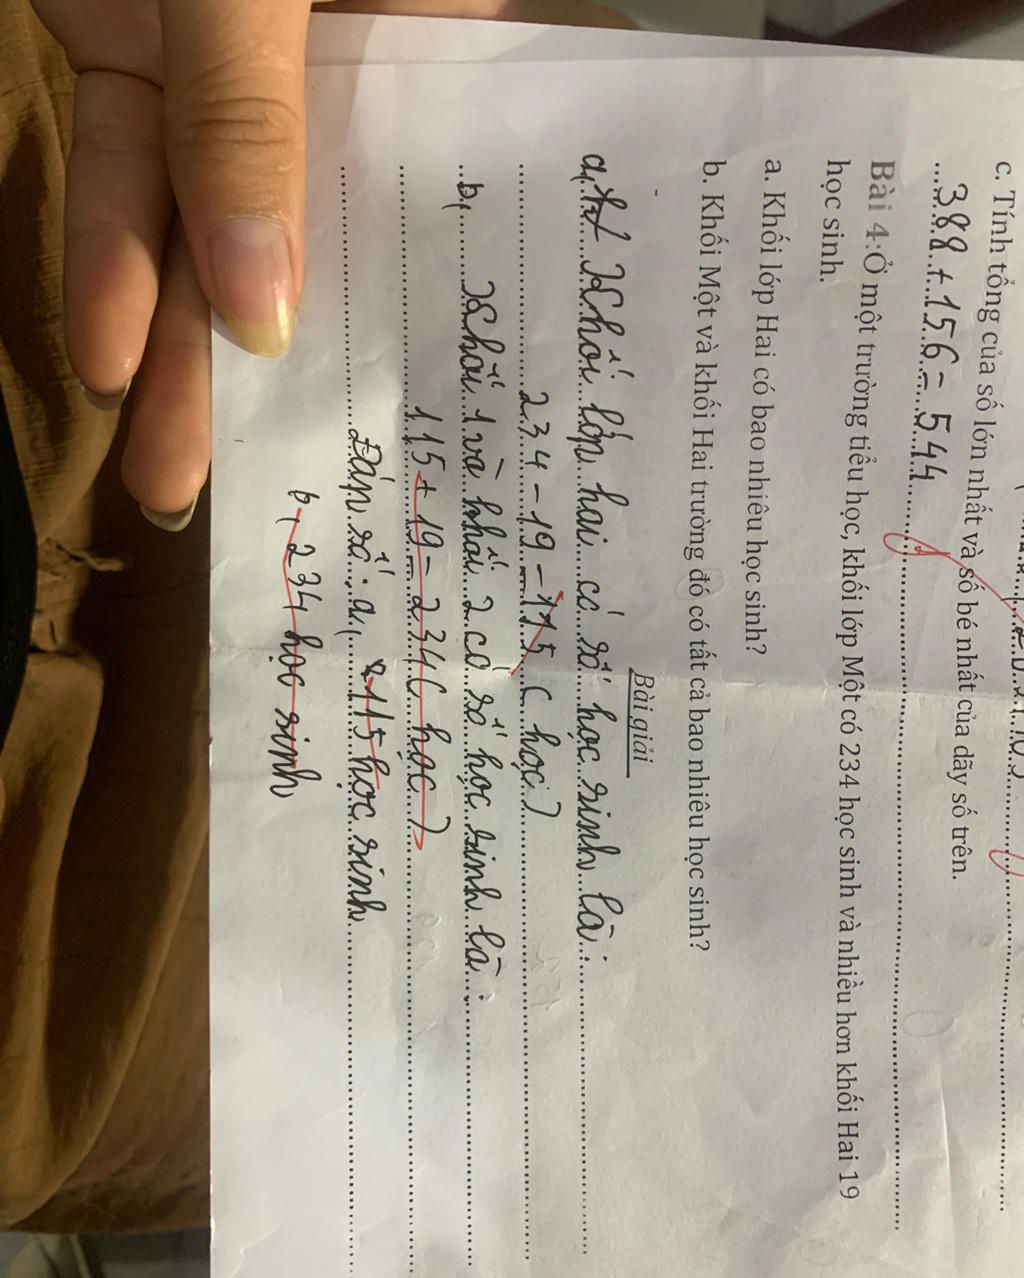 c. Tính tổng của số lớn nhất và số bé nhất của dãy số trên.
388 + 156 = 544
Bài 4:Ở một trường tiểu học, khối lớp Một có 234 học sinh và nhiều hơn khối Hai 19
học sinh.
a. Khối lớp Hai có bao nhiêu học sinh?
b. Khối Một và khối Hai trường đó có tất cả bao nhiêu học sinh?
Bài giải
a, Khối lớp hai có số học sinh là:
234 - 19 = 115 ( học )
b, Khối 1 và khối 2 có số học sinh là :
115 + 19 = 234 ( học )
Đáp số : a, 115 học sinh
b, 234 học sinh